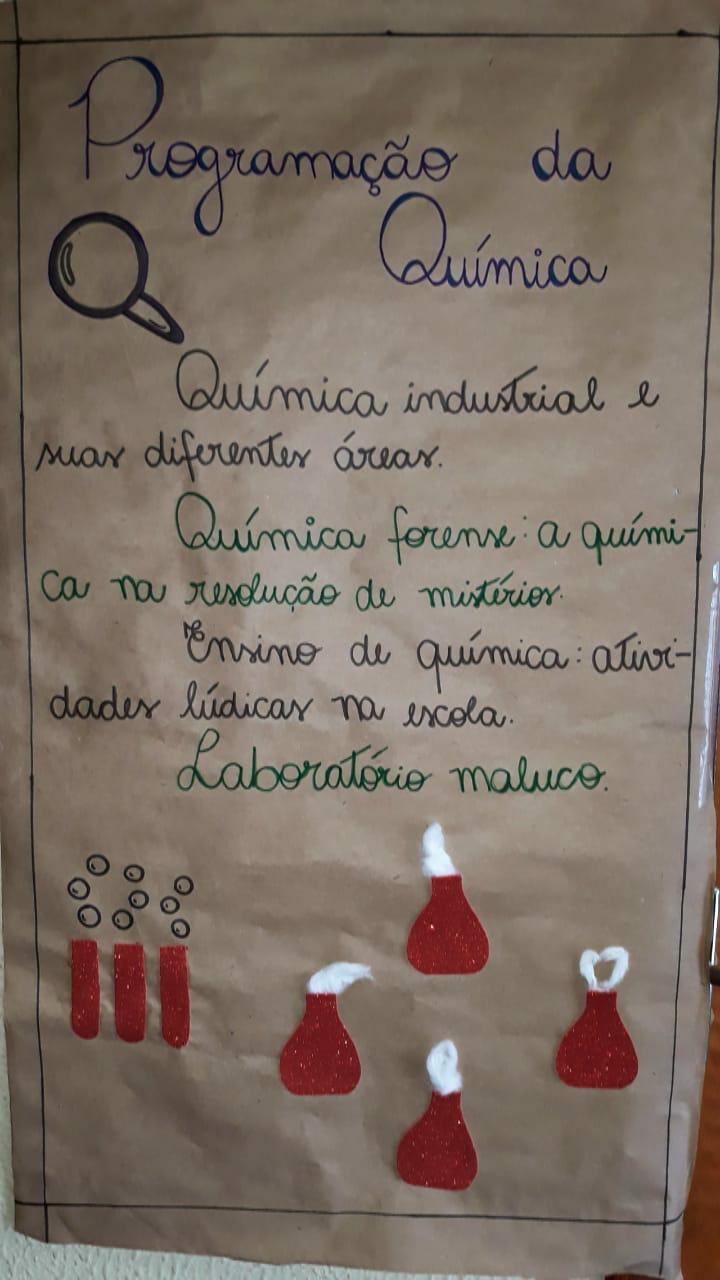 Programação da
Química
Química industrial e
suas diferentes áreas.
Química forense: a quími-
ca na resolução de mistérios.
Ensino de química: ativi-
dades lúdicas na escola.
Laboratório maluco.